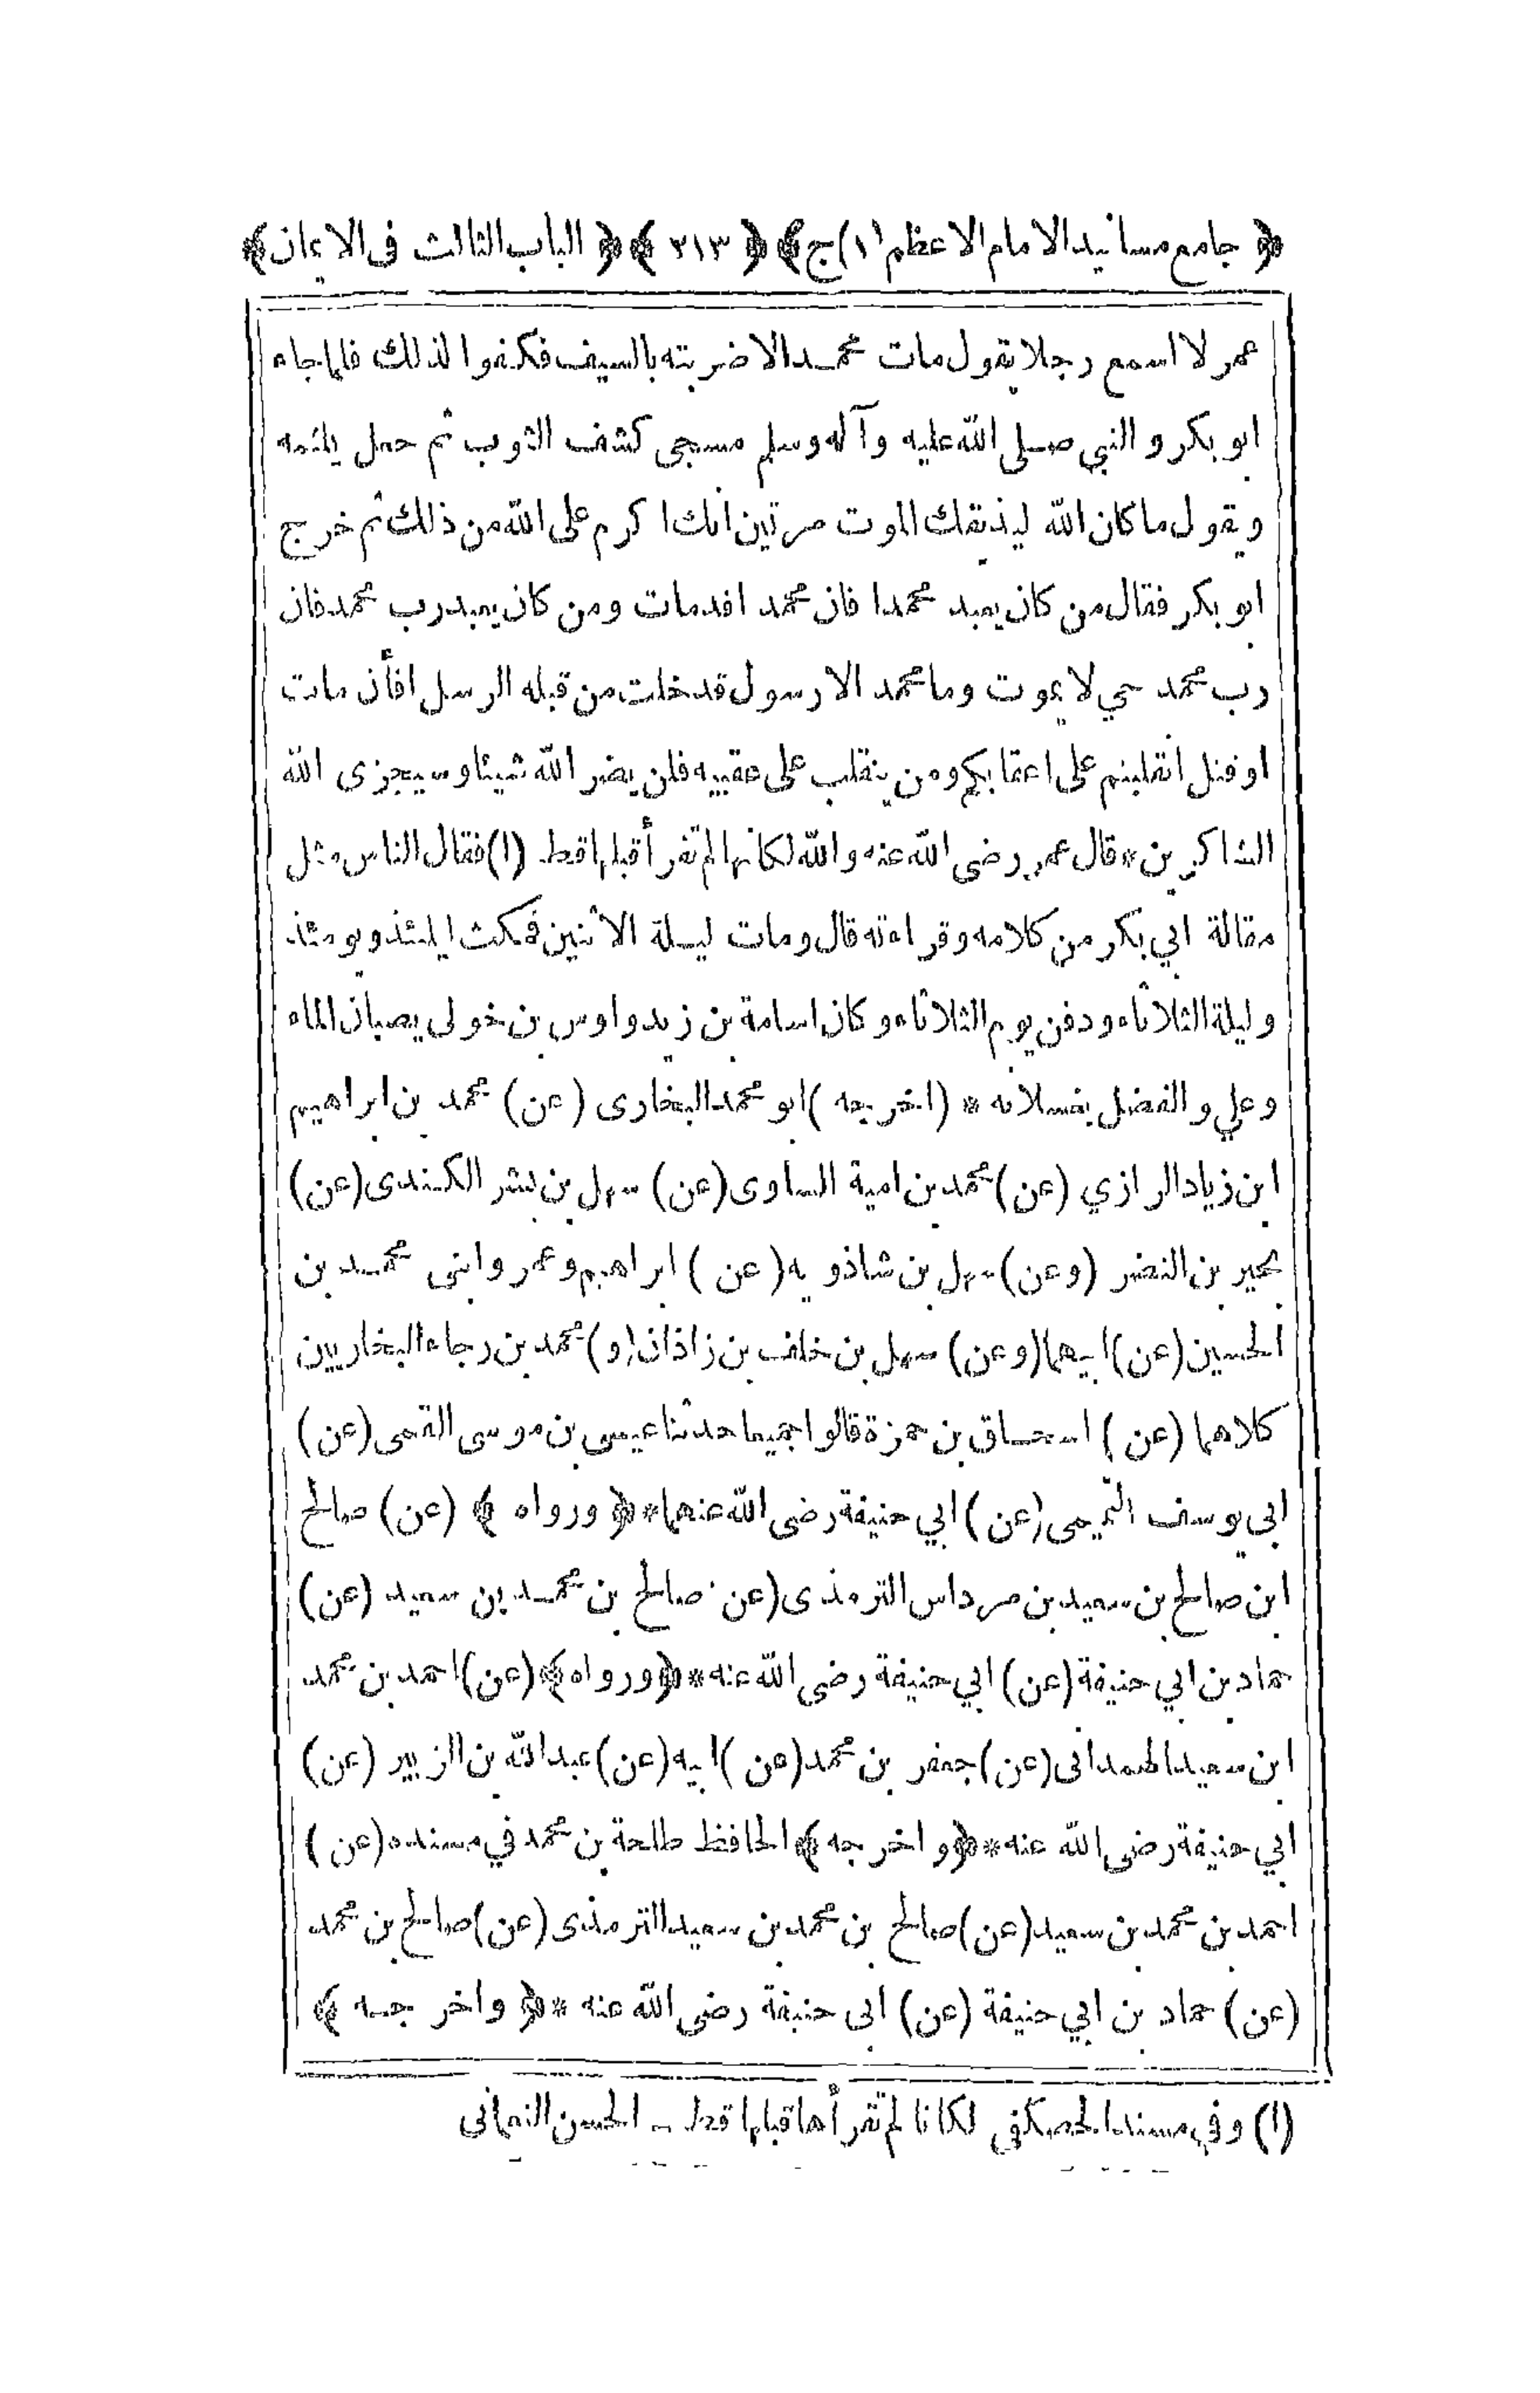 ﴿ جامع مسانيد الامام الاعظم (١) ج﴾ ﴿ ٢١٣ ﴾ ﴿ الباب الثالث فى الايمان﴾
عمر لا اسمع رجلا يقول مات محمد الا ضربته بالسيف فكفوا لذلك فلما جاء
ابو بكر و النبي صلى الله عليه وآله وسلم مسجى كشف الثوب ثم جعل يلثمه
ويقول ما كان الله ليذيقك الموت مرتين انك اكرم على الله من ذلك ثم خرج
ابو بكر فقال من كان يعبد محمدا فان محمدا قد مات ومن كان يعبد رب محمد فان
رب محمد حي لا يموت وما محمد الا رسول قد خلت من قبله الرسل افأن مات
او قتل انقلبتم على اعقابكم ومن ينقلب على عقبيه فلن يضر الله شيئا وسيجزى الله
الشاكرين * قال عمر رضى الله عنه والله لكانها لم تقرأ قبلها قط (١) فقال الناس مثل
مقالة ابي بكر من كلامه وقراءته قال ومات ليلة الاثنين فمكث ليلتئذ ويومئذ
وليلة الثلاثاء ودفن يوم الثلاثاء وكان اسامة بن زيد واوس بن خولى يصبان الماء
وعلي والفضل يغسلانه * (اخرجه) ابو محمد البخارى (عن) محمد بن ابراهيم
ابن زياد الرازي (عن) محمد بن امية الساوى (عن) سهل بن بشر الكندى (عن)
بحير بن النضر (وعن) سهل بن شاذويه (عن) ابراهيم وعمر وابنى محمد بن
الحسين (عن) ابيهما (وعن) سهل بن خلف بن زاذان (و) محمد بن رجاء البخاريين
كلاهما (عن) اسحاق بن حمزة قالوا جميعا حدثنا عيسى بن موسى القمى (عن)
ابى يوسف التميمى (عن) ابي حنيفة رضى الله عنهما * ﴿ ورواه ﴾ (عن) صالح
ابن صالح بن سعيد بن مرداس الترمذى (عن) صالح بن محمد بن سعيد (عن)
حماد بن ابي حنيفة (عن) ابي حنيفة رضى الله عنه * ﴿ورواه﴾ (عن) احمد بن محمد
ابن سعيد الهمدانى (عن) جعفر بن محمد (عن) ابيه (عن) عبد الله بن الزبير (عن)
ابي حنيفة رضى الله عنه * ﴿واخرجه﴾ الحافظ طلحة بن محمد في مسنده (عن)
احمد بن محمد بن سعيد (عن) صالح بن محمد بن سعيد الترمذى (عن) صالح بن محمد
(عن) حماد بن ابي حنيفة (عن) ابى حنيفة رضى الله عنه * ﴿ واخرجه ﴾
(١) وفي مسند الحصكفي لكانا لم تقرأها قبلها قط - الحسن النعمانى